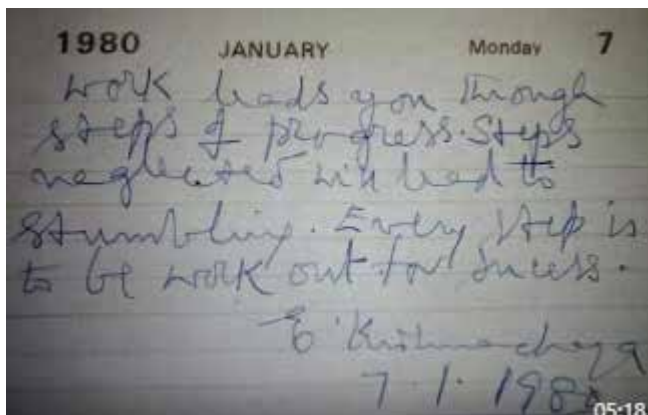 1980 JANUARY Monday 7
Work leads you through
steps of progress. Steps
neglected will lead to
stumbling. Every step is
to be work out for sucess.
E Krishnamacharya
7.1.1980
05:18